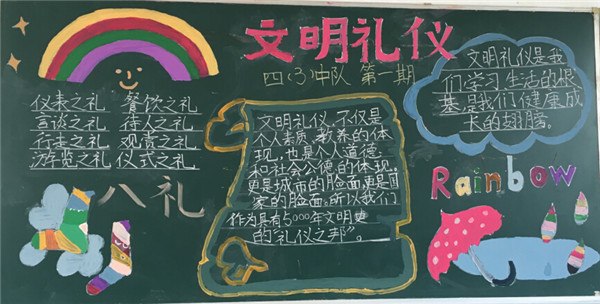 文明礼仪
四(3)中队 第一期
仪表之礼 餐饮之礼
言谈之礼 待人之礼
行走之礼 观赏之礼
游览之礼 仪式之礼
八礼
文明礼仪,不仅是
个人素质、教养的体
现,也是个人道德
和社会公德的体现,
更是城市的脸面,更是国
家的脸面.所以我们
作为具有5000年文明史
的“礼仪之邦”。
文明礼仪是我
们学习、生活的根
基,是我们健康成
长的翅膀。
Rainbow